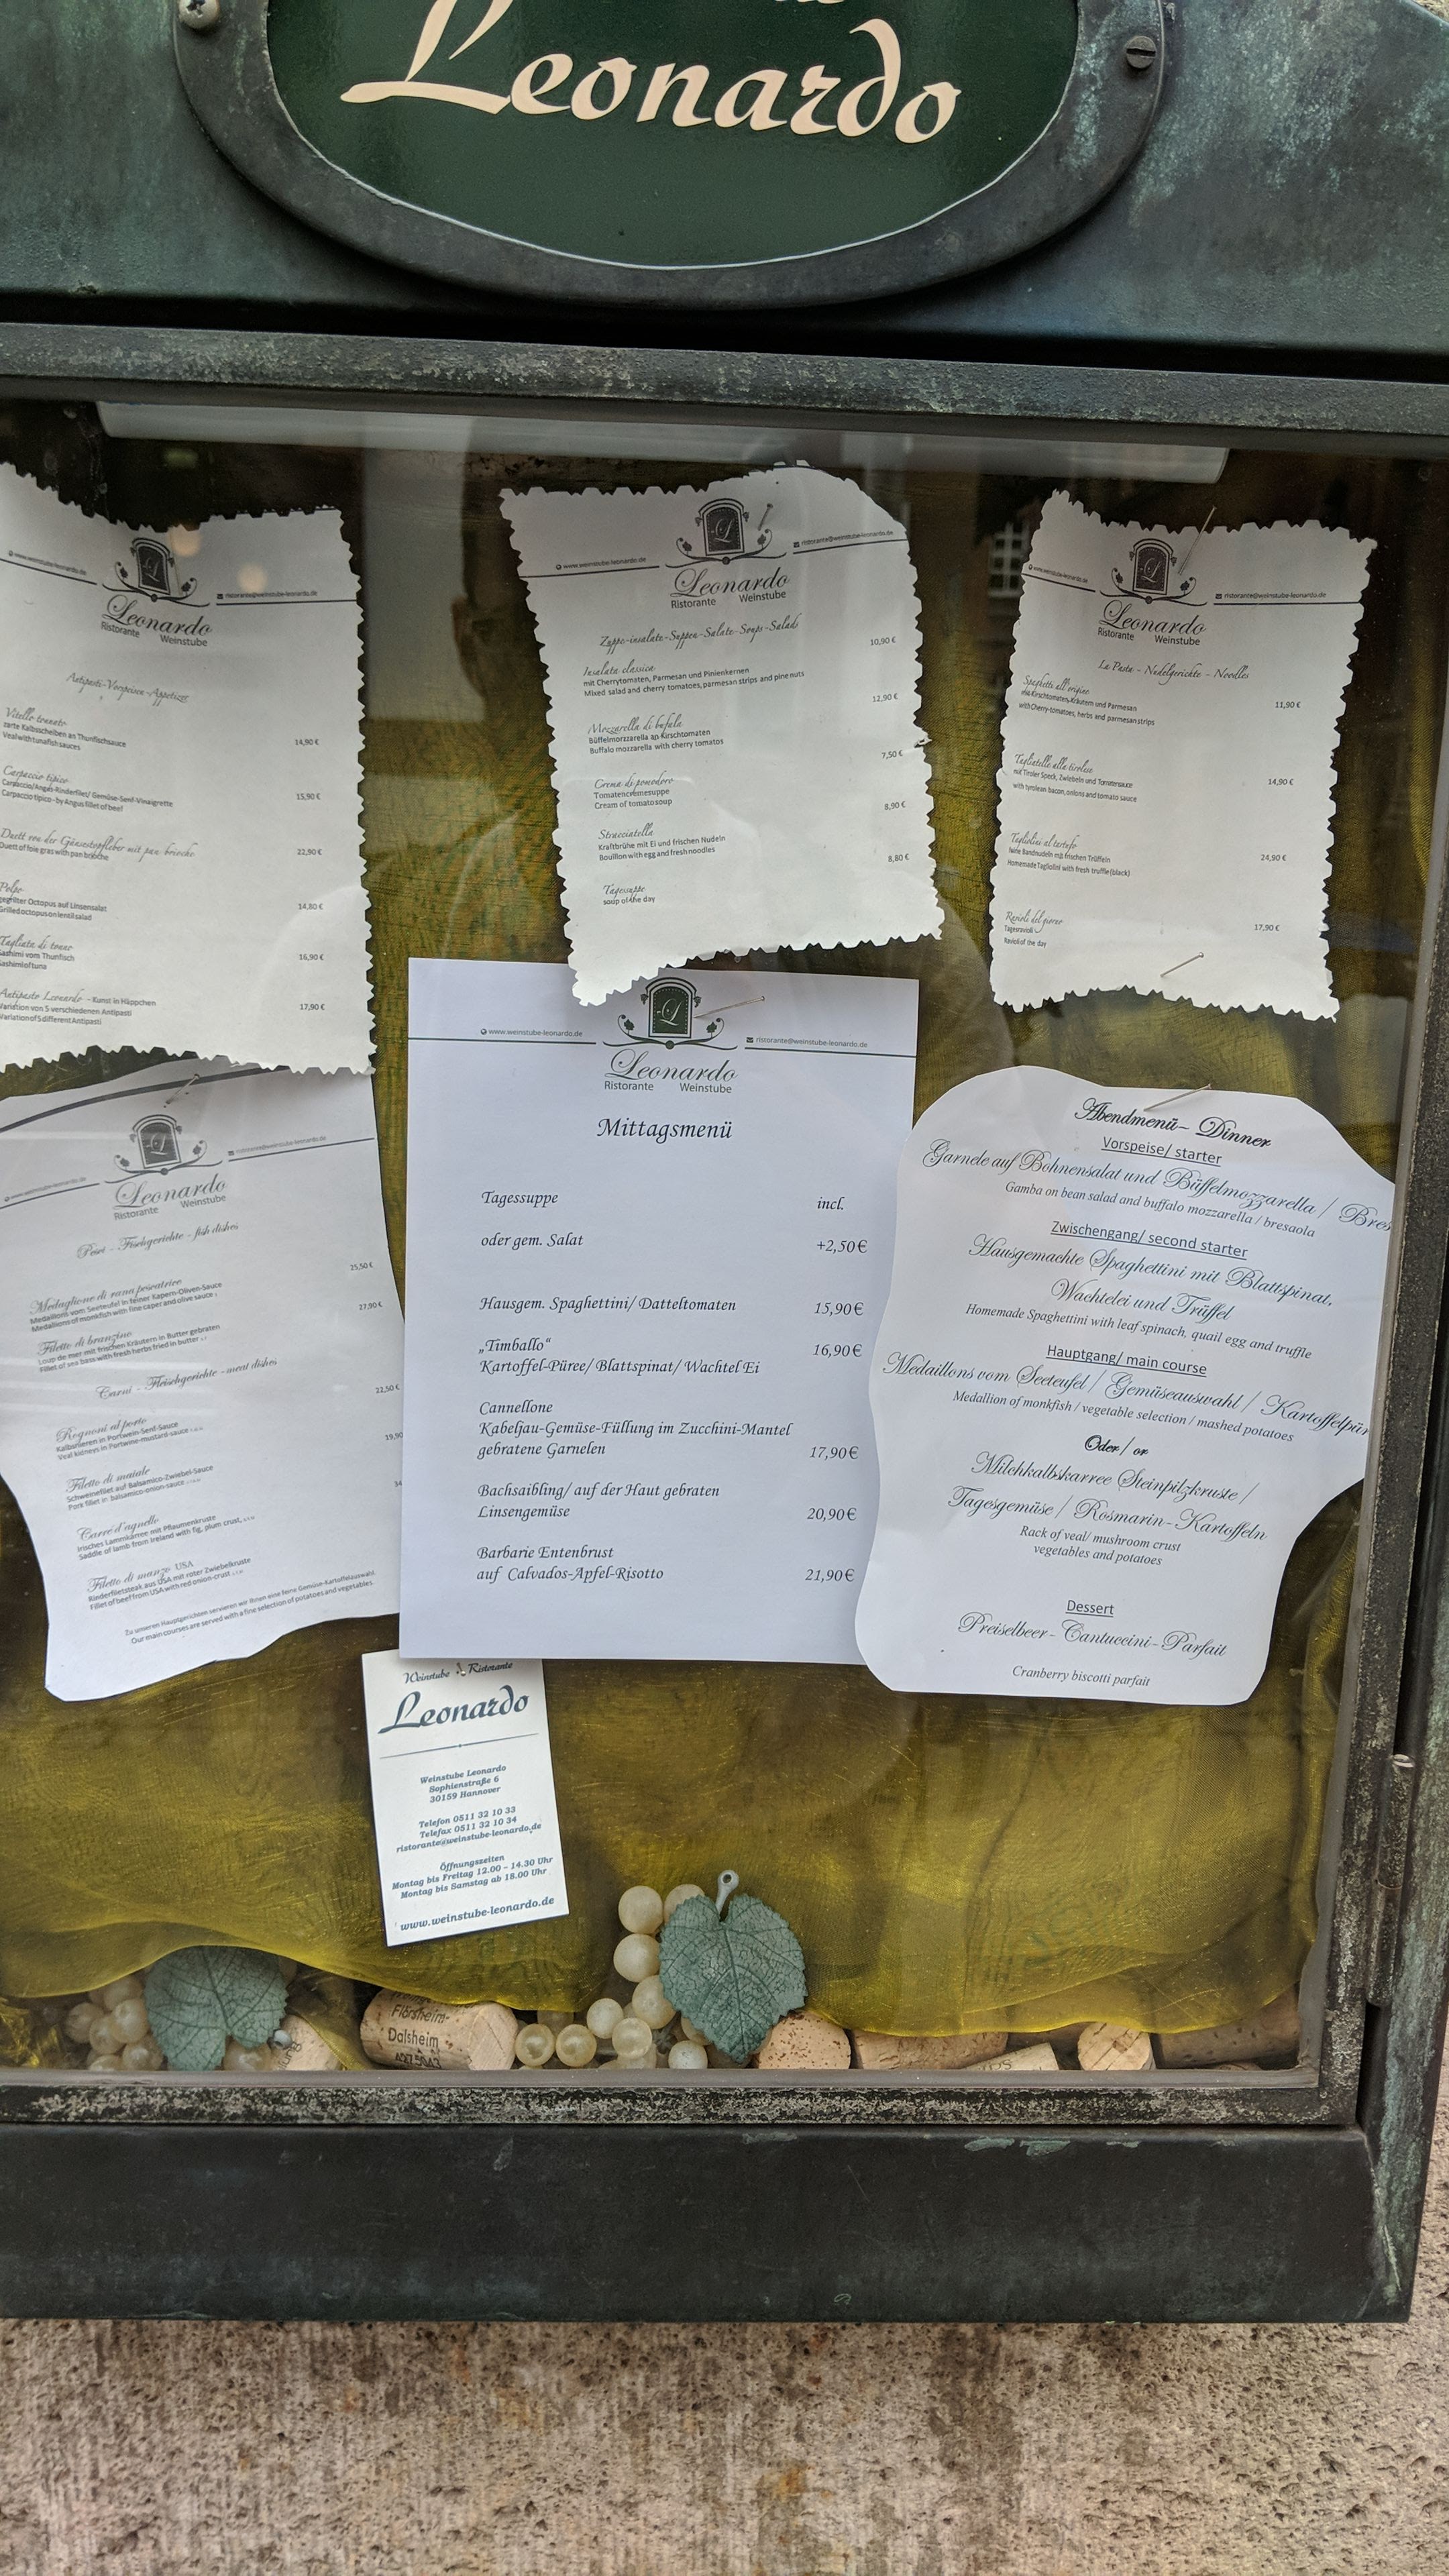 Leonardo
www.weinstube-leonardo.de
ristorante@weinstube-leonardo.de
L
Leonardo
Ristorante Weinstube
Antipasti-Vorspeisen-Appetizer
Vitello tonnato
zarte Kalbsscheiben an Thunfischsauce
Veal with tunafish sauces
14,90 €
Carpaccio tipico
Carpaccio/Angus-Rinderfilet/ Gemüse-Senf-Vinaigrette
Carpaccio tipico - by Angus fillet of beef
15,90 €
Duett von der Gänsestopfleber mit pan brioche
Duett of foie gras with pan brioche
22,90 €
Polpo
gegrillter Octopus auf Linsensalat
Grilled octopus on lentil salad
14,80 €
Tagliata di tonno
Sashimi vom Thunfisch
Sashimi of tuna
16,90 €
Antipasto Leonardo - Kunst in Häppchen
Variation von 5 verschiedenen Antipasti
Variation of 5 different Antipasti
17,90 €
www.weinstube-leonardo.de
ristorante@weinstube-leonardo.de
L
Leonardo
Ristorante Weinstube
Zuppe-insalate-Suppen-Salate-Soups-Salads
10,90 €
Insalata classica
mit Cherrytomaten, Parmesan und Pinienkernen
Mixed salad and cherry tomatoes, parmesan strips and pine nuts
12,90 €
Mozzarella di bufala
Büffelmorzzarella an Kirschtomaten
Buffalo mozzarella with cherry tomatos
7,50 €
Crema di pomodoro
Tomatencremesuppe
Cream of tomato soup
8,90 €
Stracciatella
Kraftbrühe mit Ei und frischen Nudeln
Bouillon with egg and fresh noodles
8,80 €
Tagessuppe
soup of the day
www.weinstube-leonardo.de
ristorante@weinstube-leonardo.de
L
Leonardo
Ristorante Weinstube
La Pasta - Nudelgerichte - Noodles
Spaghetti all'origine
mit Kirschtomaten, Kräutern und Parmesan
with Cherry-tomatoes, herbs and parmesan strips
11,90 €
Tagliatelle alla tirolese
mit Tiroler Speck, Zwiebeln und Tomatensauce
with tyrolean bacon, onions and tomato sauce
14,90 €
Tagliolini al tartufo
feine Bandnudeln mit frischen Trüffeln
Homemade Tagliolini with fresh truffle (black)
24,90 €
Ravioli del giorno
Tagesravioli
Ravioli of the day
17,90 €
www.weinstube-leonardo.de
ristorante@weinstube-leonardo.de
L
Leonardo
Ristorante Weinstube
Pesci - Fischgerichte - fish dishes
25,50 €
Medaglione di rana pescatrice
Medaillons vom Seeteufel in feiner Kapern-Oliven-Sauce
Medallions of monkfish with fine caper and olive sauce
27,90 €
Filetto di branzino
Loup de mer mit frischen Kräutern in Butter gebraten
Fillet of sea bass with fresh herbs fried in butter
Carni - Fleischgerichte - meat dishes
22,50 €
Rognoni al porto
Kalbsnieren in Portwein-Senf-Sauce
Veal kidneys in Portwine-mustard-sauce
19,90
Filetto di maiale
Schweinefilet auf Balsamico-Zwiebel-Sauce
Pork fillet in balsamico-onion-sauce
34
Carré d'agnello
Irisches Lammkarree mit Pflaumenkruste
Saddle of lamb from Ireland with fig, plum crust,
Filetto di manzo USA
Rinderfiletsteak aus USA mit roter Zwiebelkruste
Fillet of beef from USA with red onion-crust
Zu unseren Hauptgerichten servieren wir Ihnen eine feine Gemüse-Kartoffelauswahl.
Our main courses are served with a fine selection of potatoes and vegetables.
www.weinstube-leonardo.de
ristorante@weinstube-leonardo.de
L
Leonardo
Ristorante Weinstube
Mittagsmenü
Tagessuppe incl.
oder gem. Salat +2,50€
Hausgem. Spaghettini/ Datteltomaten 15,90€
„Timballo“ 16,90€
Kartoffel-Püree/ Blattspinat/ Wachtel Ei
Cannellone
Kabeljau-Gemüse-Füllung im Zucchini-Mantel
gebratene Garnelen 17,90€
Bachsaibling/ auf der Haut gebraten
Linsengemüse 20,90€
Barbarie Entenbrust
auf Calvados-Apfel-Risotto 21,90€
Abendmenü- Dinner
Vorspeise/ starter
Garnele auf Bohnensalat und Büffelmozzarella / Bres
Gamba on bean salad and buffalo mozzarella / bresaola
Zwischengang/ second starter
Hausgemachte Spaghettini mit Blattspinat,
Wachtelei und Trüffel
Homemade Spaghettini with leaf spinach, quail egg and truffle
Hauptgang/ main course
Medaillons vom Seeteufel / Gemüseauswahl / Kartoffelpür
Medallion of monkfish / vegetable selection / mashed potatoes
Oder / or
Milchkalbskarree Steinpilzkruste /
Tagesgemüse / Rosmarin-Kartoffeln
Rack of veal/ mushroom crust
vegetables and potatoes
Dessert
Preiselbeer-Cantuccini-Parfait
Cranberry biscotti parfait
Weinstube Ristorante
Leonardo
Weinstube Leonardo
Sophienstraße 6
30159 Hannover
Telefon 0511 32 10 33
Telefax 0511 32 10 34
ristorante@weinstube-leonardo.de
Öffnungszeiten
Montag bis Freitag 12.00 - 14.30 Uhr
Montag bis Samstag ab 18.00 Uhr
www.weinstube-leonardo.de
Flörsheim-
Dalsheim